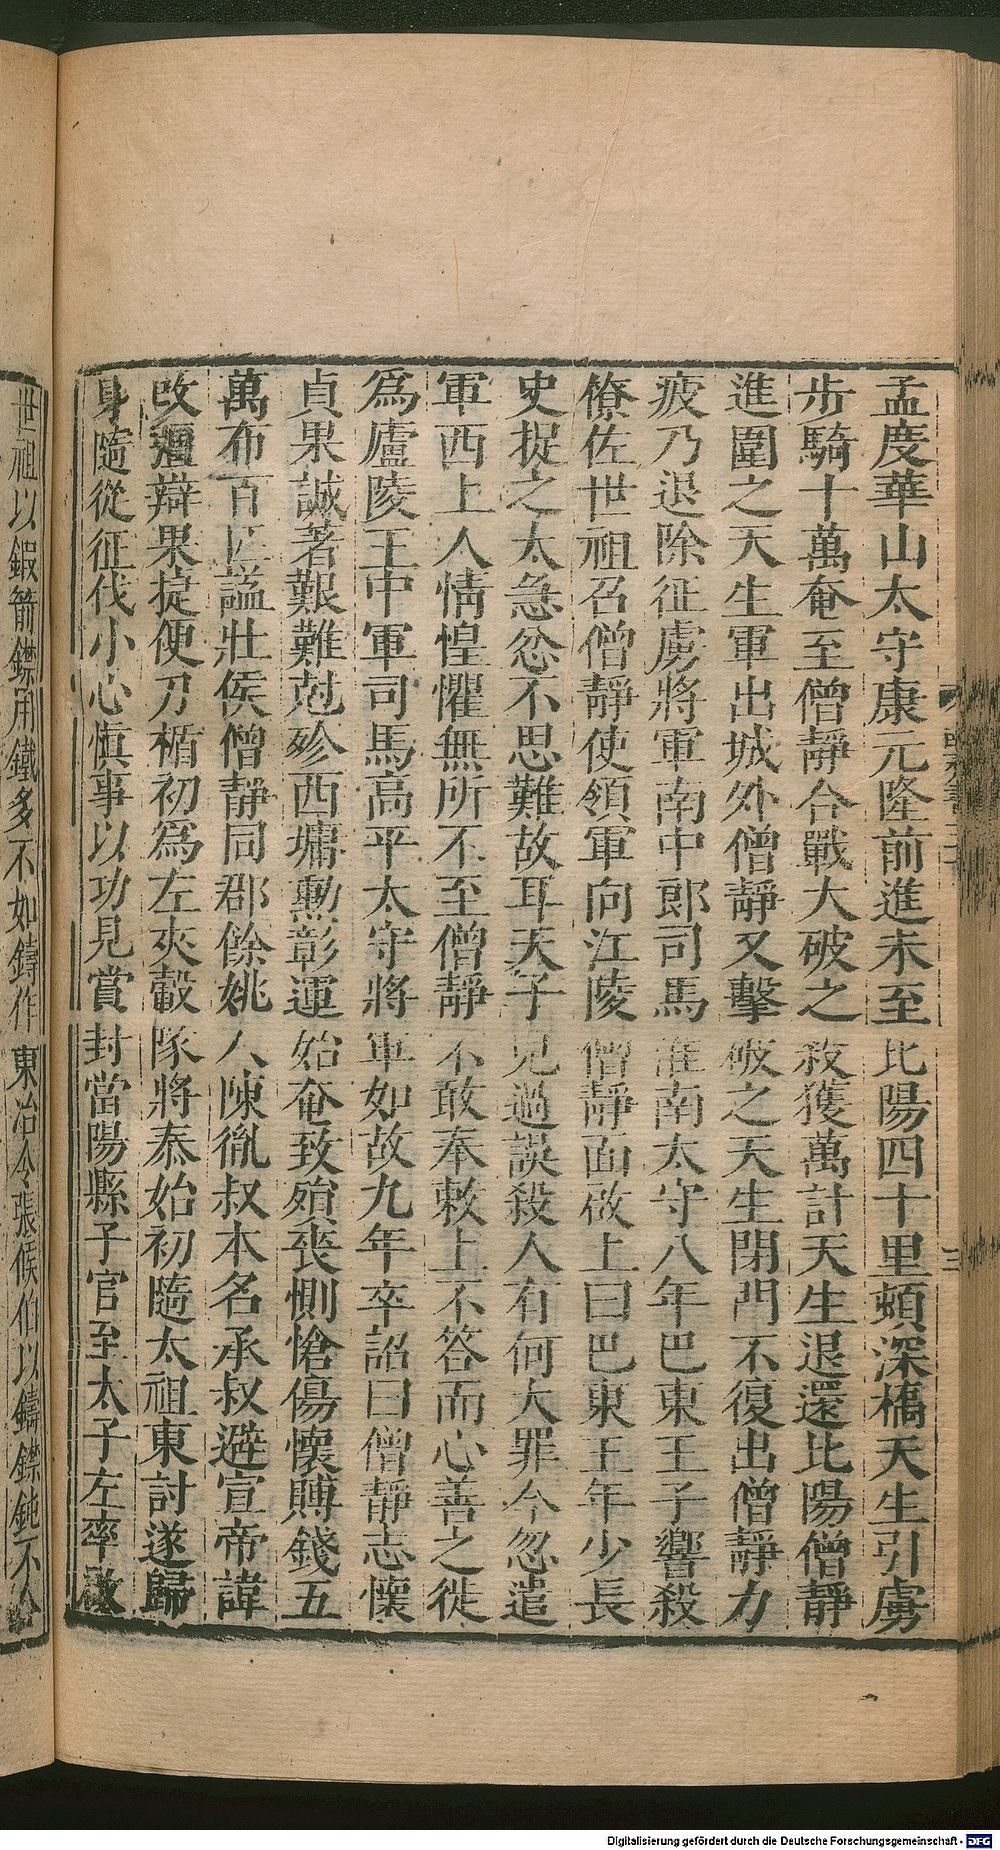 孟度華山太守康元隆前進未至比陽四十里頓深橋天生引虜
步騎十萬奄至僧靜合戰大破之殺獲萬計天生退還比陽僧靜
進圍之天生軍出城外僧靜又擊破之天生閉門不復出僧靜力
疲乃退除征虜將軍南中郎司馬淮南太守八年巴東王子響殺
僚佐世祖召僧靜使領軍向江陵僧靜面啟上曰巴東王年少長
史捉之太急忿不思難故耳天子兒過誤殺人有何大罪今忽遣
軍西上人情惶懼無所不至僧靜不敢奉敕上不答而心善之徙
為廬陵王中軍司馬高平太守將軍如故九年卒詔曰僧靜志懷
貞果誠著艱難尅殄西墉勳彰運始奄致殞喪惻愴傷懷賻錢五
萬布百匹謚壯侯僧靜同郡餘姚人陳胤叔本名承叔避宣帝諱
改彊辯果捷便刀楯初為左夾轂隊將泰始初隨太祖東討遂歸
身隨從征伐小心慎事以功見賞封當陽縣子官至太子左率啟
世祖以鍜箭鏃用鐵多不如鑄作東冶令張候伯以鑄鏃鈍不
Digitalisierung gefördert durch die Deutsche Forschungsgemeinschaft - DFG